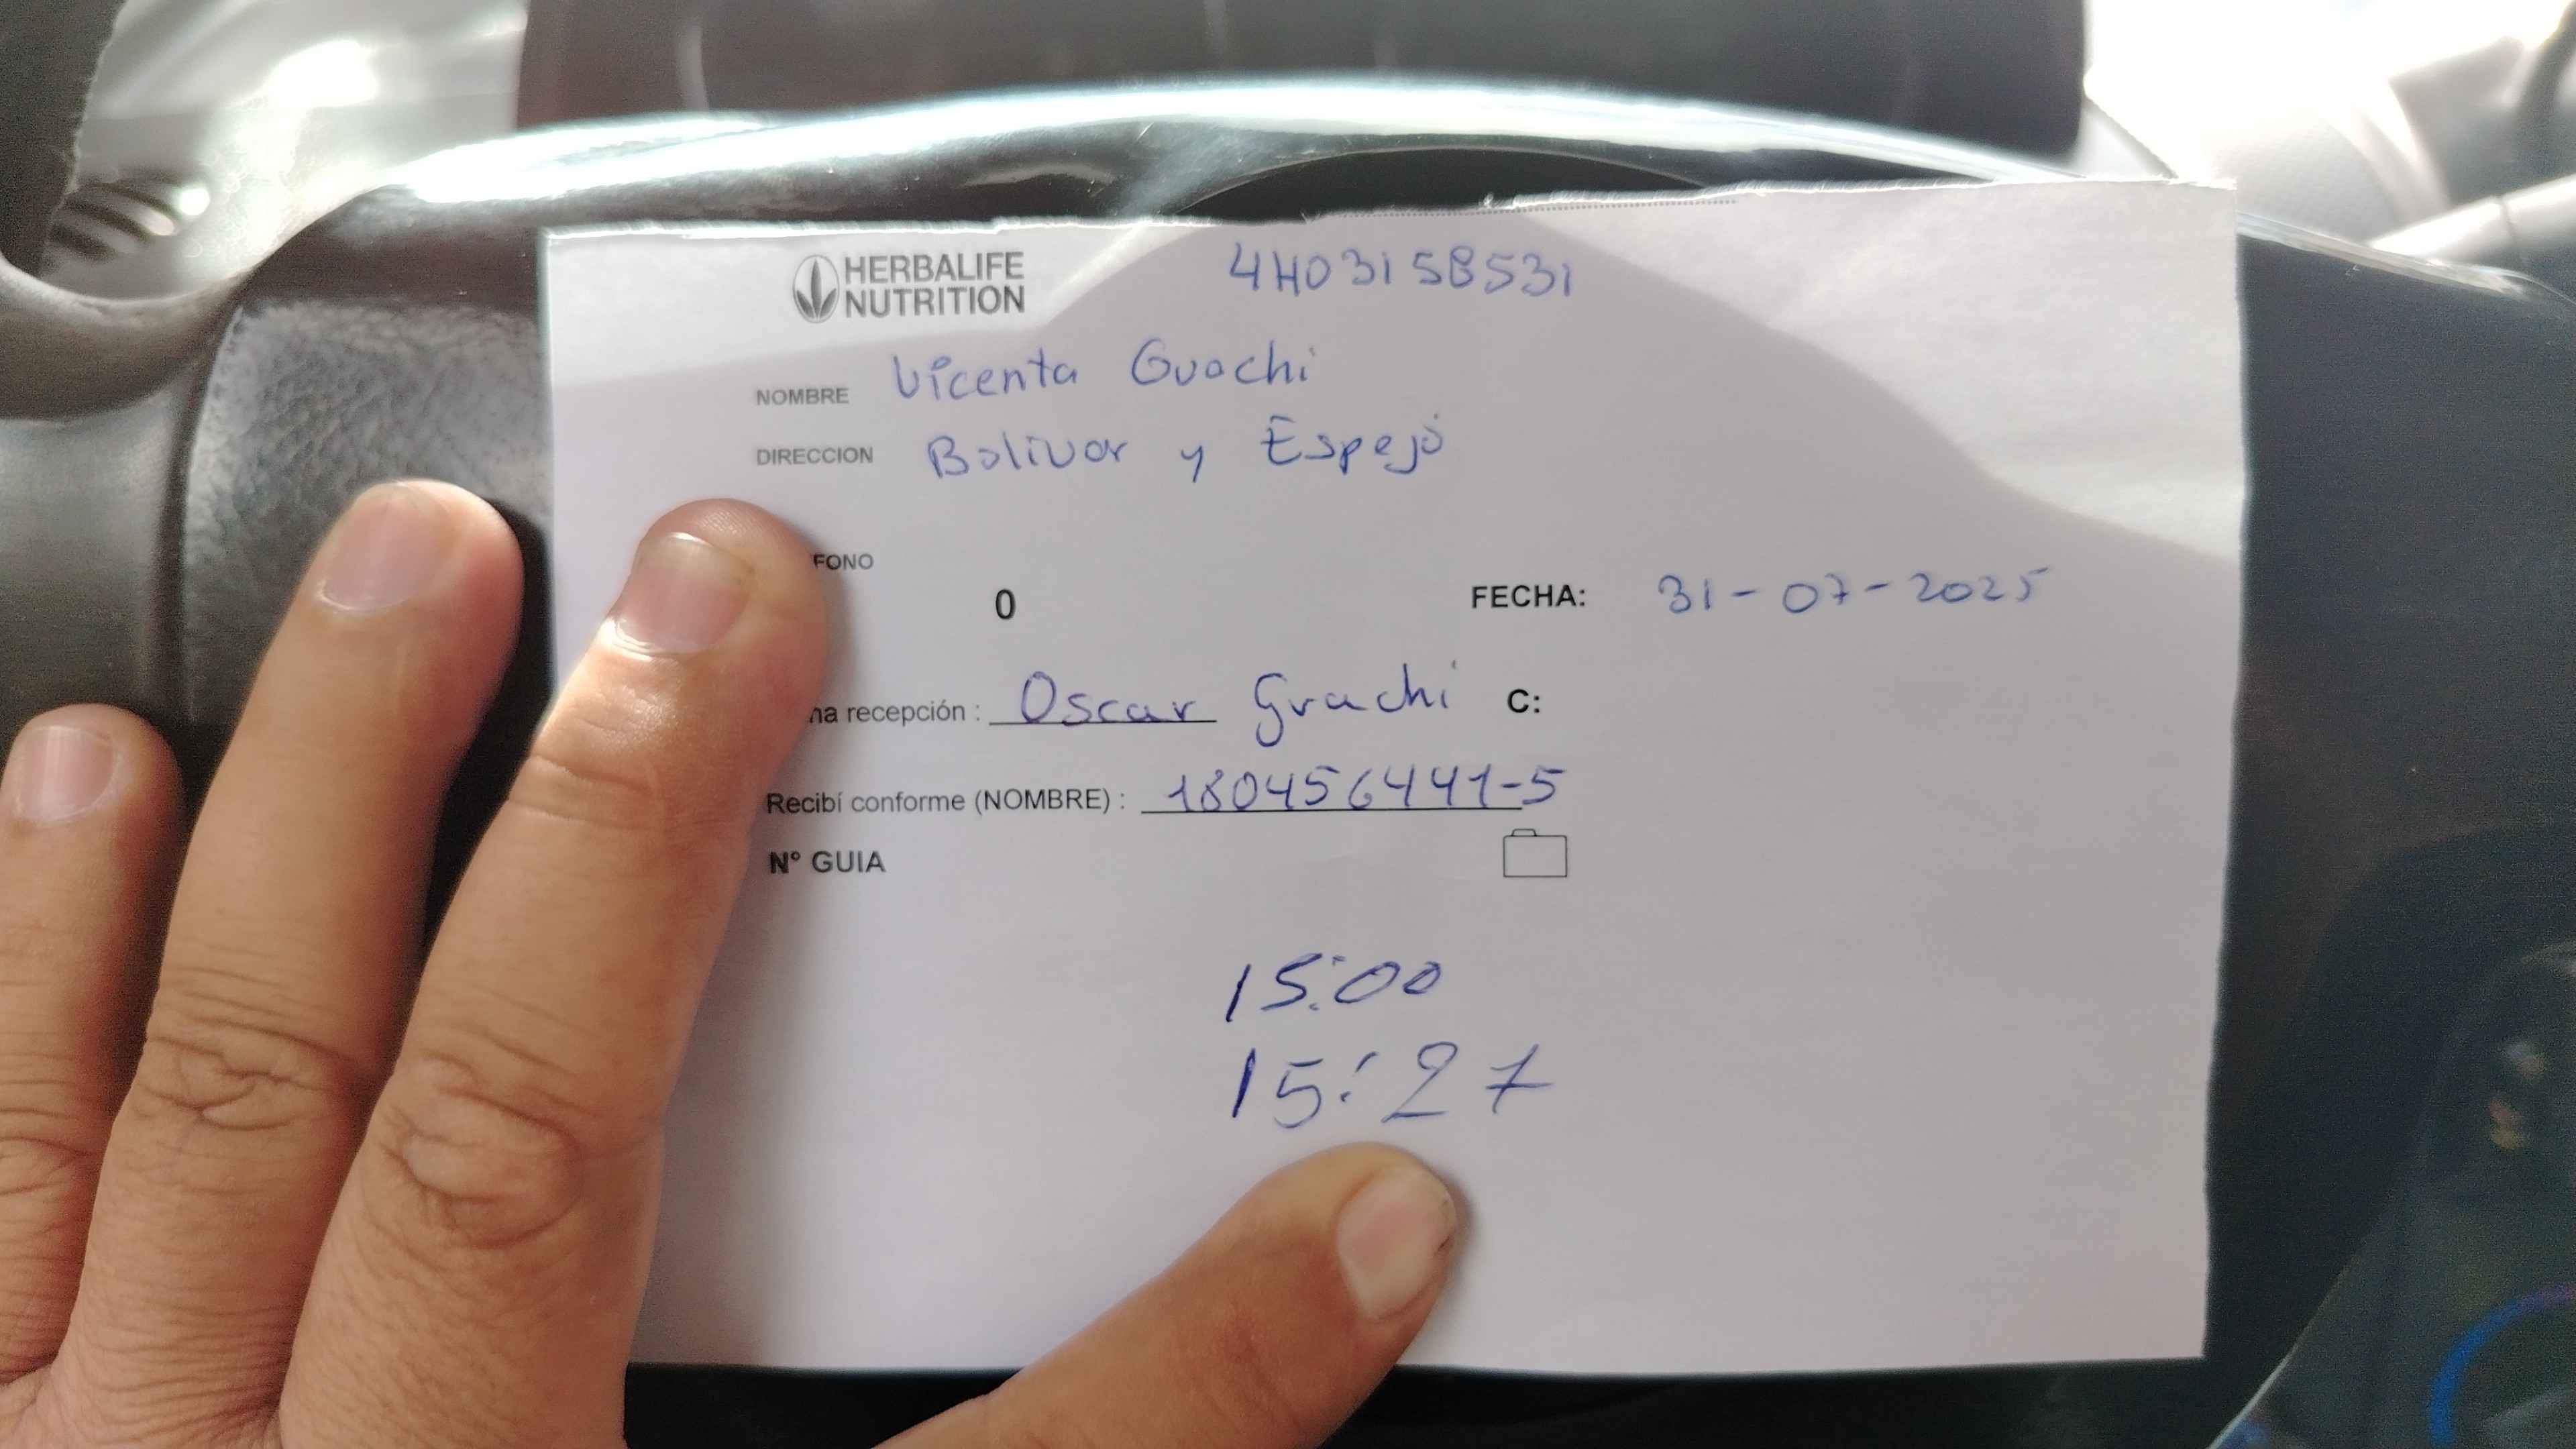 HERBALIFE
NUTRITION
4H03158531
NOMBRE Vicenta Guachi
DIRECCION Bolivar y Espejo
FONO
0
FECHA: 31-07-2025
na recepción : Oscar Guachi C:
Recibí conforme (NOMBRE) : 180456441-5
N° GUIA
15:00
15:27